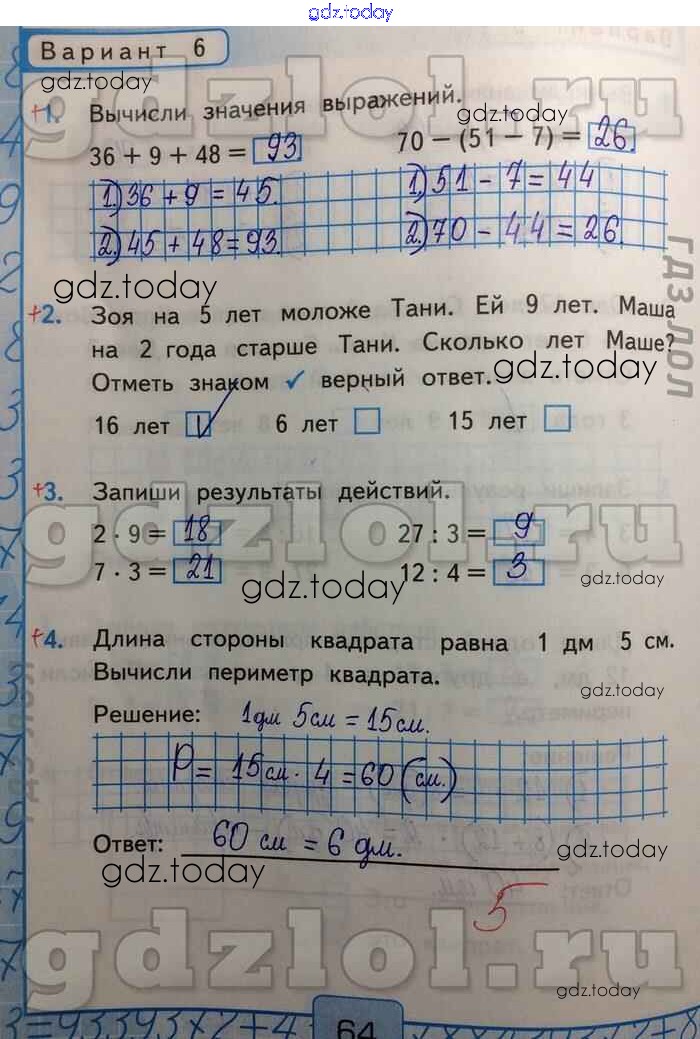 gdz.today
Вариант 6
gdz.today
+1. Вычисли значения выражений.
gdz.today
36 + 9 + 48 = 93
70 – (51 – 7) = 26.
1) 36 + 9 = 45.
1) 51 - 7 = 44
2) 45 + 48 = 93.
2) 70 - 44 = 26.
gdzlol.ru
ГДЗ ЛОЛ
gdz.today
+2. Зоя на 5 лет моложе Тани. Ей 9 лет. Маша
на 2 года старше Тани. Сколько лет Маше?
Отметь знаком ✓ верный ответ.
gdz.today
16 лет ✓ 6 лет 15 лет
+3. Запиши результаты действий.
2 · 9 = 18 27 : 3 = 9
7 · 3 = 21 12 : 4 = 3
gdzlol.ru
gdz.today
gdz.today
+4. Длина стороны квадрата равна 1 дм 5 см.
Вычисли периметр квадрата.
gdz.today
Решение: 1дм 5см = 15см.
P = 15см · 4 = 60 (см.)
ГДЗ ЛОЛ
Ответ: 60 см = 6 дм.
gdz.today
gdz.today
5
gdzlol.ru
gdz.today
64